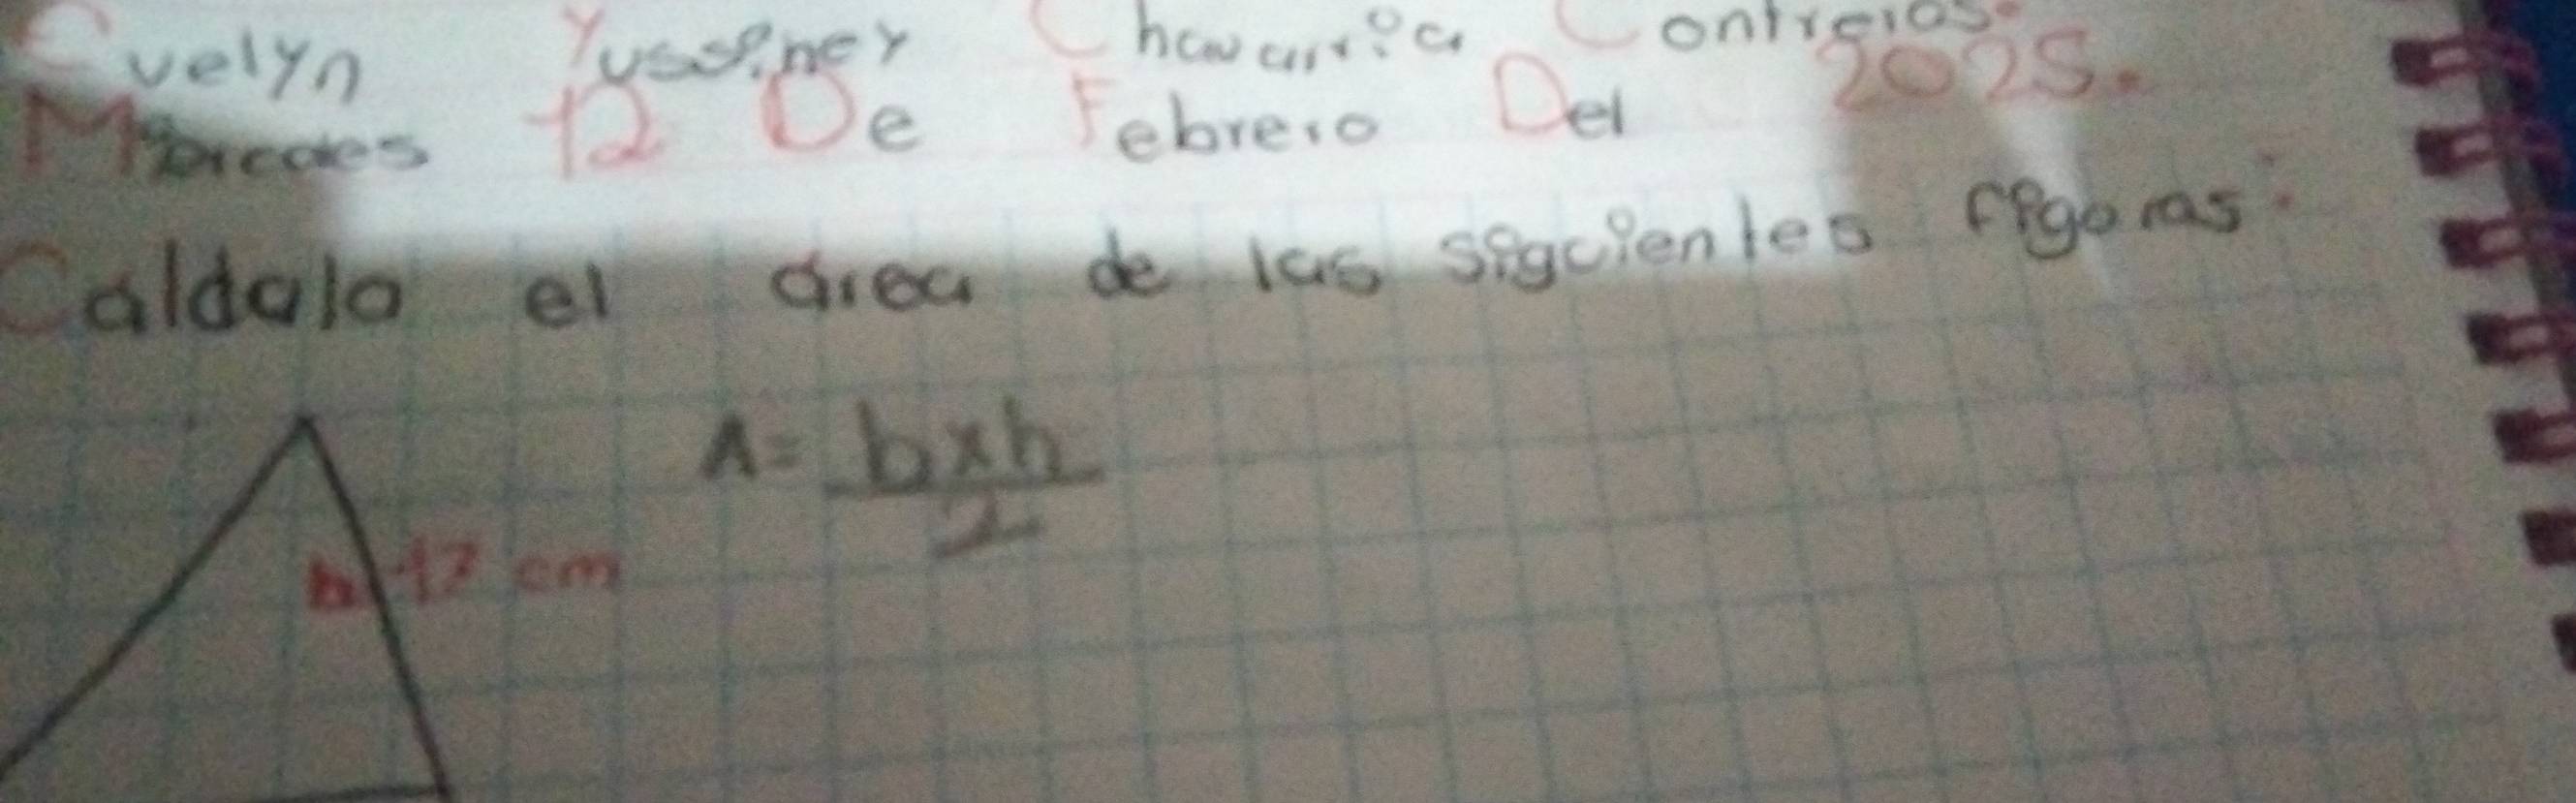 Evelyn Yussiney Chavarria Contreras.
Miercoles 12 De Febrero Del 2025.
Caldalo el área de las sigcientes figoras:
A= bxh
2
h 17 cm